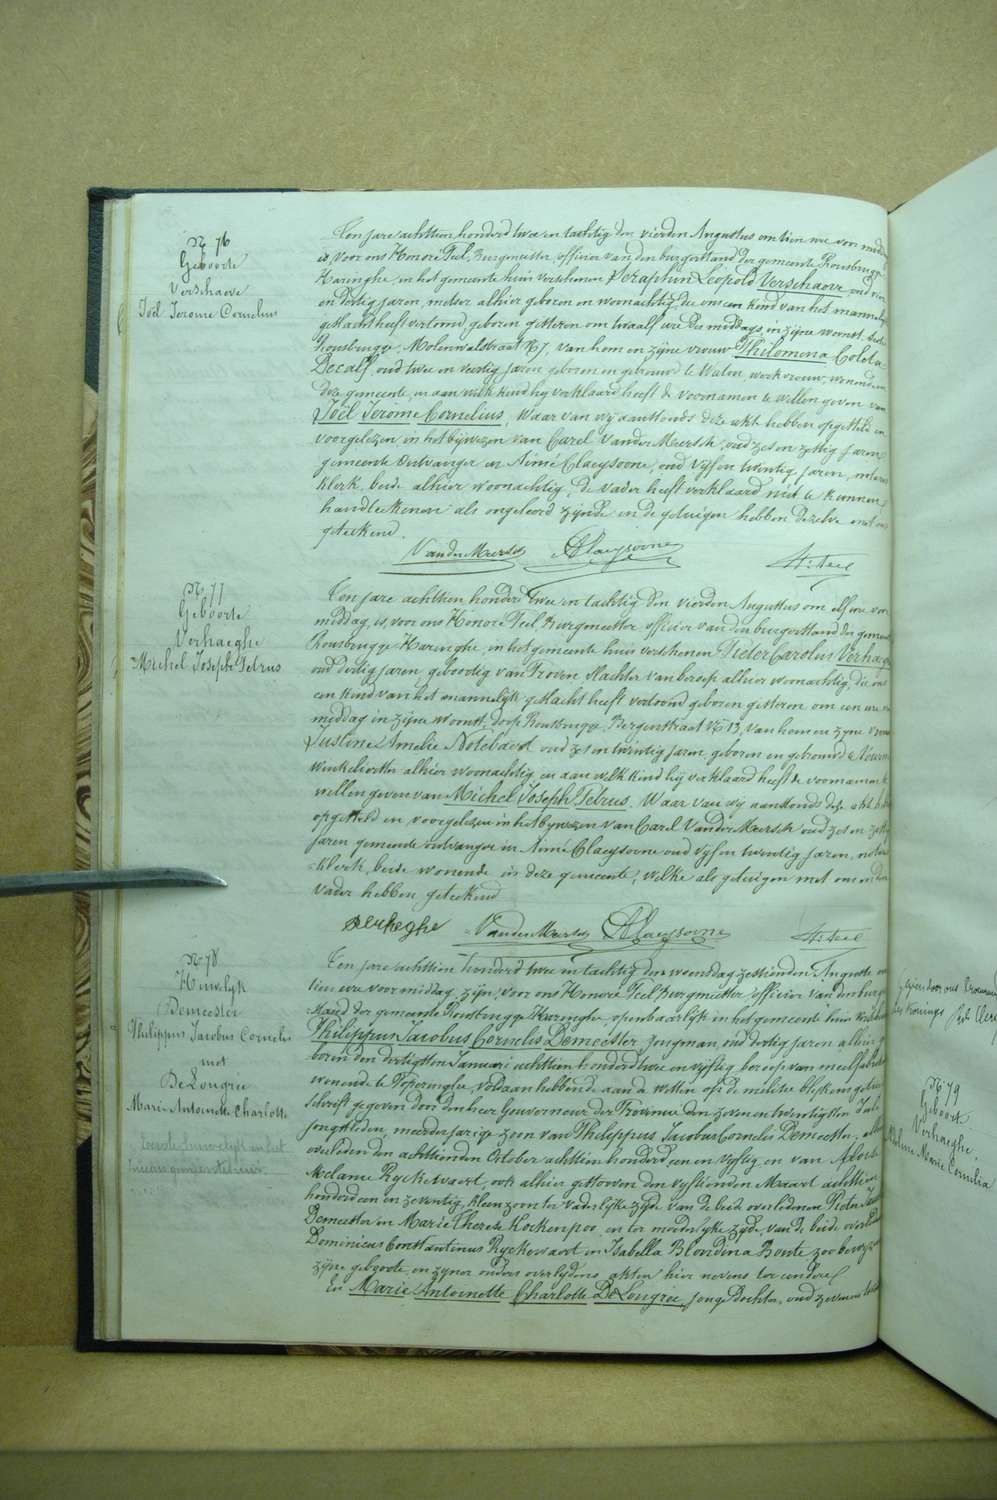 N 76
Geboorte
Verschaeve
Joël Jerome Cornelius
Ten jare achttien honderd twee en tachtig den vierden Augustus om tien ure voor middag
is, voor ons Honoré Teel, Burgmeester officier van den burgerstand der gemeente Rousbrugge
Haringhe, in het gemeente huis verschenen Seraphin Leopold Verschaeve, oud vier
en dertig jaren, metser alhier geboren en woonachtig, die ons een kind van het mannelijk
geslacht heeft vertoond, geboren gisteren om twaalf ure des middags, in zijne woonst, dorp
Rousbrugge, Molenwalstraat N 7, van hem en zijne vrouw Philomena Coleta
Decalf, oud twee en veertig jaren geboren en getrouwd te Watou, werkvrouw, wonende in
deze gemeente, en aan welk kind hij verklaard heeft de voornamen te willen geven van
Joël Jerome Cornelius, Waar van wij aanstonds deze akt hebben opgesteld en
voorgelezen in het bijwezen van Carel VanderMeersch, oud zes en zestig jaren
gemeente Ontvanger en Aimé Claeysoone, oud vijf en twintig jaren, notaris
klerk, beide alhier woonachtig, de vader heeft verklaard niet te kunnen
handteekenen als ongeleerd zijnde en de getuigen hebben dezelve met ons
geteekend.
VanderMeersch AClaeysoone H: Teel
N 77
Geboorte
Verhaeghe
Michel Joseph Petrus
Ten jare achttien honderd twee en tachtig den vierden Augustus om elf ure voor
middag, is, voor ons Honoré Teel, Burgmeester officier van den burgerstand der gemeente
Rousbrugge Haringhe, in het gemeente huis verschenen Pieter Carolus Verhaeghe
oud dertig jaren, geboortig van Proven slachter van beroep alhier woonachtig, die ons
een kind van het mannelijk geslacht heeft vertoond geboren gisteren om een ure na
middag in zijne woonst, dorp Rousbrugge, Bergenstraat N 13, van hem en zijne vrouw
Justine Amelie Notebaert oud zes en twintig jaren, geboren en getrouwd te Veurne
alhier woonachtig, en aan welk kind hij verklaard heeft de voornamen te
willen geven van Michel Joseph Petrus. Waar van wij aanstonds deze akt hebben
opgesteld en voorgelezen in het bijwezen van Carel VanderMeersch oud zes en zestig
jaren gemeente ontvanger en Aimé Claeysoone oud vijf en twintig jaren, notaris
klerk, beide wonende in deze gemeente, welke als getuigen met ons en den
Vader hebben geteekend
verhaeghe VanderMeersch AClaeysoone H: Teel
N 78
Huwelyk
Demeester
Philippus Jacobus Cornelis
met
De Lougrie
Marie Antoinette Charlotte
Ten jare achttien honderd twee en tachtig den woensdag zestienden Augusti om
tien ure voor middag, zijn, voor ons Honoré Teel, Burgmeester officier van den burger
stand der gemeente Rousbrugge Haringhe, openbaarlijk in het gemeente huis verschenen
Philippus Jacobus Cornelis Demeester, jongman, oud dertig jaren, alhier ge
boren den dertigsten Januari achttien honderd twee en vijftig, beroep van meelfabrikant
wonende te Poperinghe, voldaan hebbende aan de wetten op de militie blijkens getuig
schrift gegeven door den heer Gouverneur der Provincie den zeven en twintigsten Juli
jongstleden, meerderjarige zoon van Philippus Jacobus Cornelis Demeester, alhier
overleden den achttienden October achttien honderd een en vijftig, en van
Melanie Ryckewaert, ook alhier gestorven den vijftienden Maart achttien
honderd een en zeventig, kleenzoon ter vaderlijke zijde van de beide overledenen Pieter
Demeester en Marie Therese Hockenpoo, en ter moederlyke zyde, van de beide overledenen
Dominicus Constantinus Ryckewaert en Isabella Blondina Bonte zoo bewyzen
zijne geboorte, en zijner ouders overlydens akten hier nevens ten eindere
En Marie Antoinette Charlotte De Lougrie, jonge dochter, oud zeven en
N 79
Geboort
Verhaeghe
Marie Cornelia